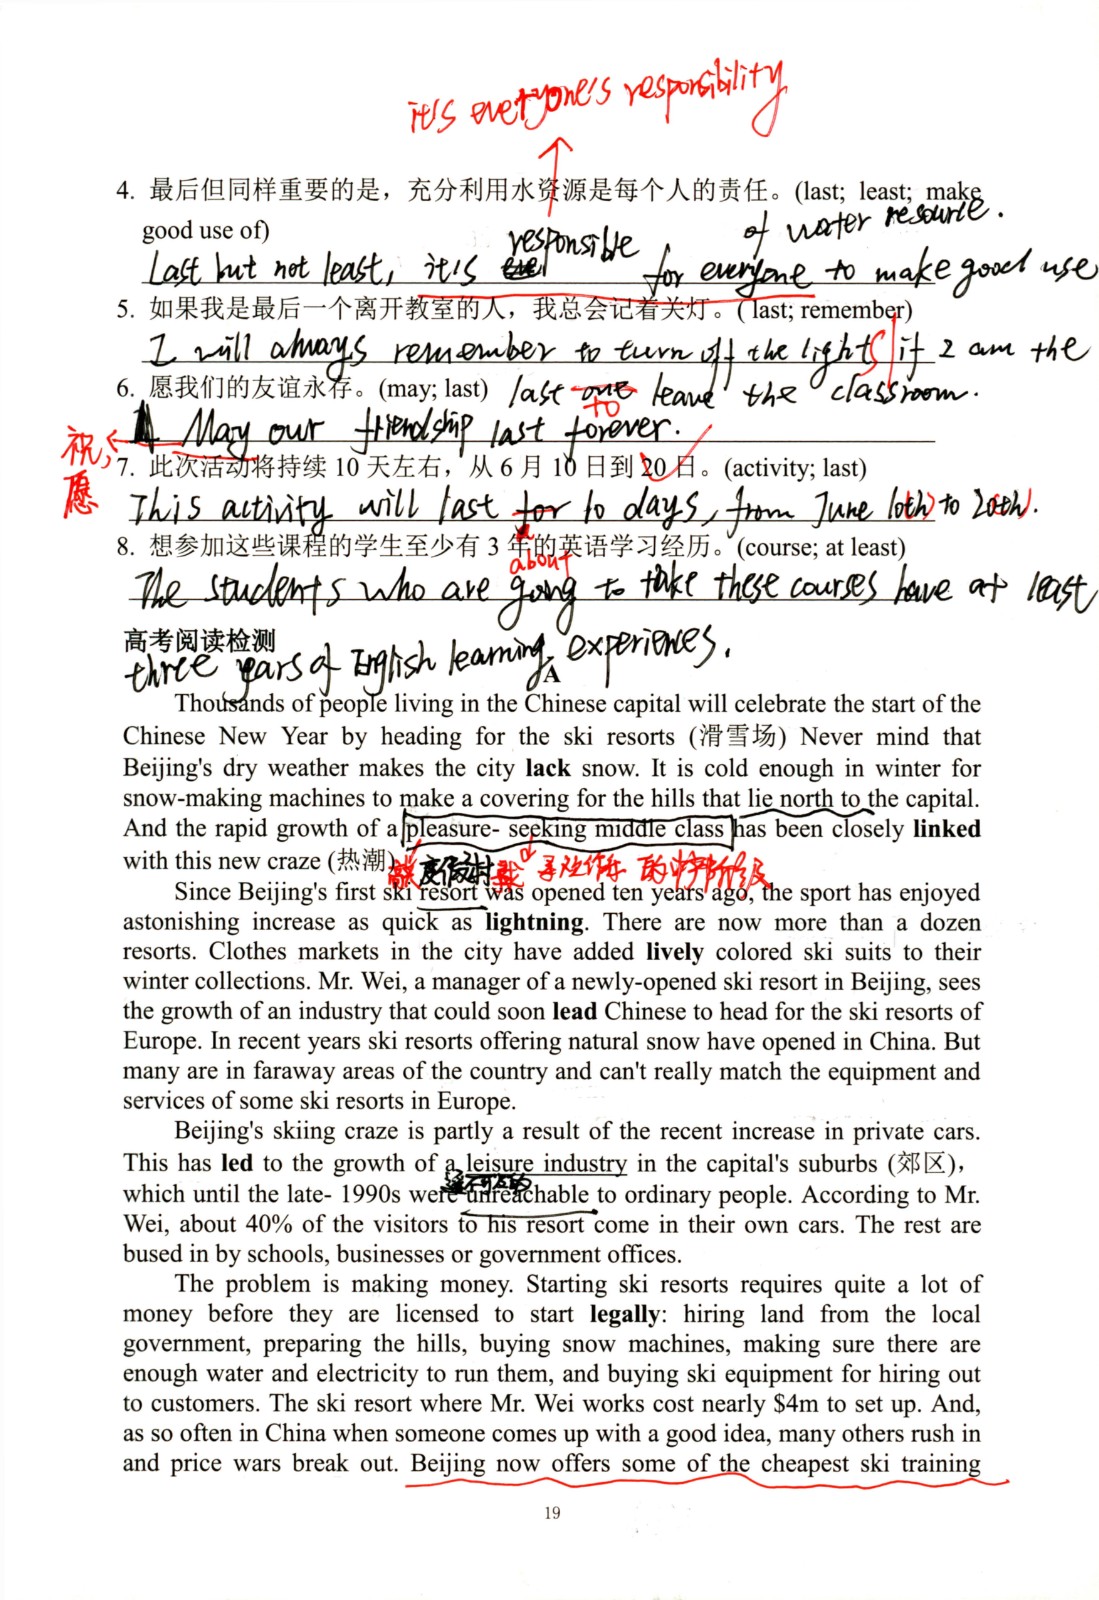 it's everyone's responsibility
4. 最后但同样重要的是，充分利用水资源是每个人的责任。(last; least; make
good use of)
of water resource.
responsible
Last but not least, it's for everyone to make good use
5. 如果我是最后一个离开教室的人，我总会记着关灯。( last; remember)
I will always remember to turn off the lights if I am the
6. 愿我们的友谊永存。(may; last)
last one leave the classroom.
to
May our friendship last forever.
祝,
愿
7. 此次活动将持续 10 天左右，从 6 月 10 日到 20 日。(activity; last)
This activity will last for 10 days, from June 10(th) to 20(th).
8. 想参加这些课程的学生至少有 3 年的英语学习经历。(course; at least)
about
The students who are going to take these courses have at least
高考阅读检测
three years of English learning experiences.
A
Thousands of people living in the Chinese capital will celebrate the start of the
Chinese New Year by heading for the ski resorts (滑雪场) Never mind that
Beijing's dry weather makes the city lack snow. It is cold enough in winter for
snow-making machines to make a covering for the hills that lie north to the capital.
And the rapid growth of a pleasure- seeking middle class has been closely linked
with this new craze (热潮)
度假村 寻欢作乐 的中产阶级
Since Beijing's first ski resort was opened ten years ago, the sport has enjoyed
astonishing increase as quick as lightning. There are now more than a dozen
resorts. Clothes markets in the city have added lively colored ski suits to their
winter collections. Mr. Wei, a manager of a newly-opened ski resort in Beijing, sees
the growth of an industry that could soon lead Chinese to head for the ski resorts of
Europe. In recent years ski resorts offering natural snow have opened in China. But
many are in faraway areas of the country and can't really match the equipment and
services of some ski resorts in Europe.
Beijing's skiing craze is partly a result of the recent increase in private cars.
This has led to the growth of a leisure industry in the capital's suburbs (郊区)，
不可及的
which until the late- 1990s were unreachable to ordinary people. According to Mr.
Wei, about 40% of the visitors to his resort come in their own cars. The rest are
bused in by schools, businesses or government offices.
The problem is making money. Starting ski resorts requires quite a lot of
money before they are licensed to start legally: hiring land from the local
government, preparing the hills, buying snow machines, making sure there are
enough water and electricity to run them, and buying ski equipment for hiring out
to customers. The ski resort where Mr. Wei works cost nearly $4m to set up. And,
as so often in China when someone comes up with a good idea, many others rush in
and price wars break out. Beijing now offers some of the cheapest ski training
19